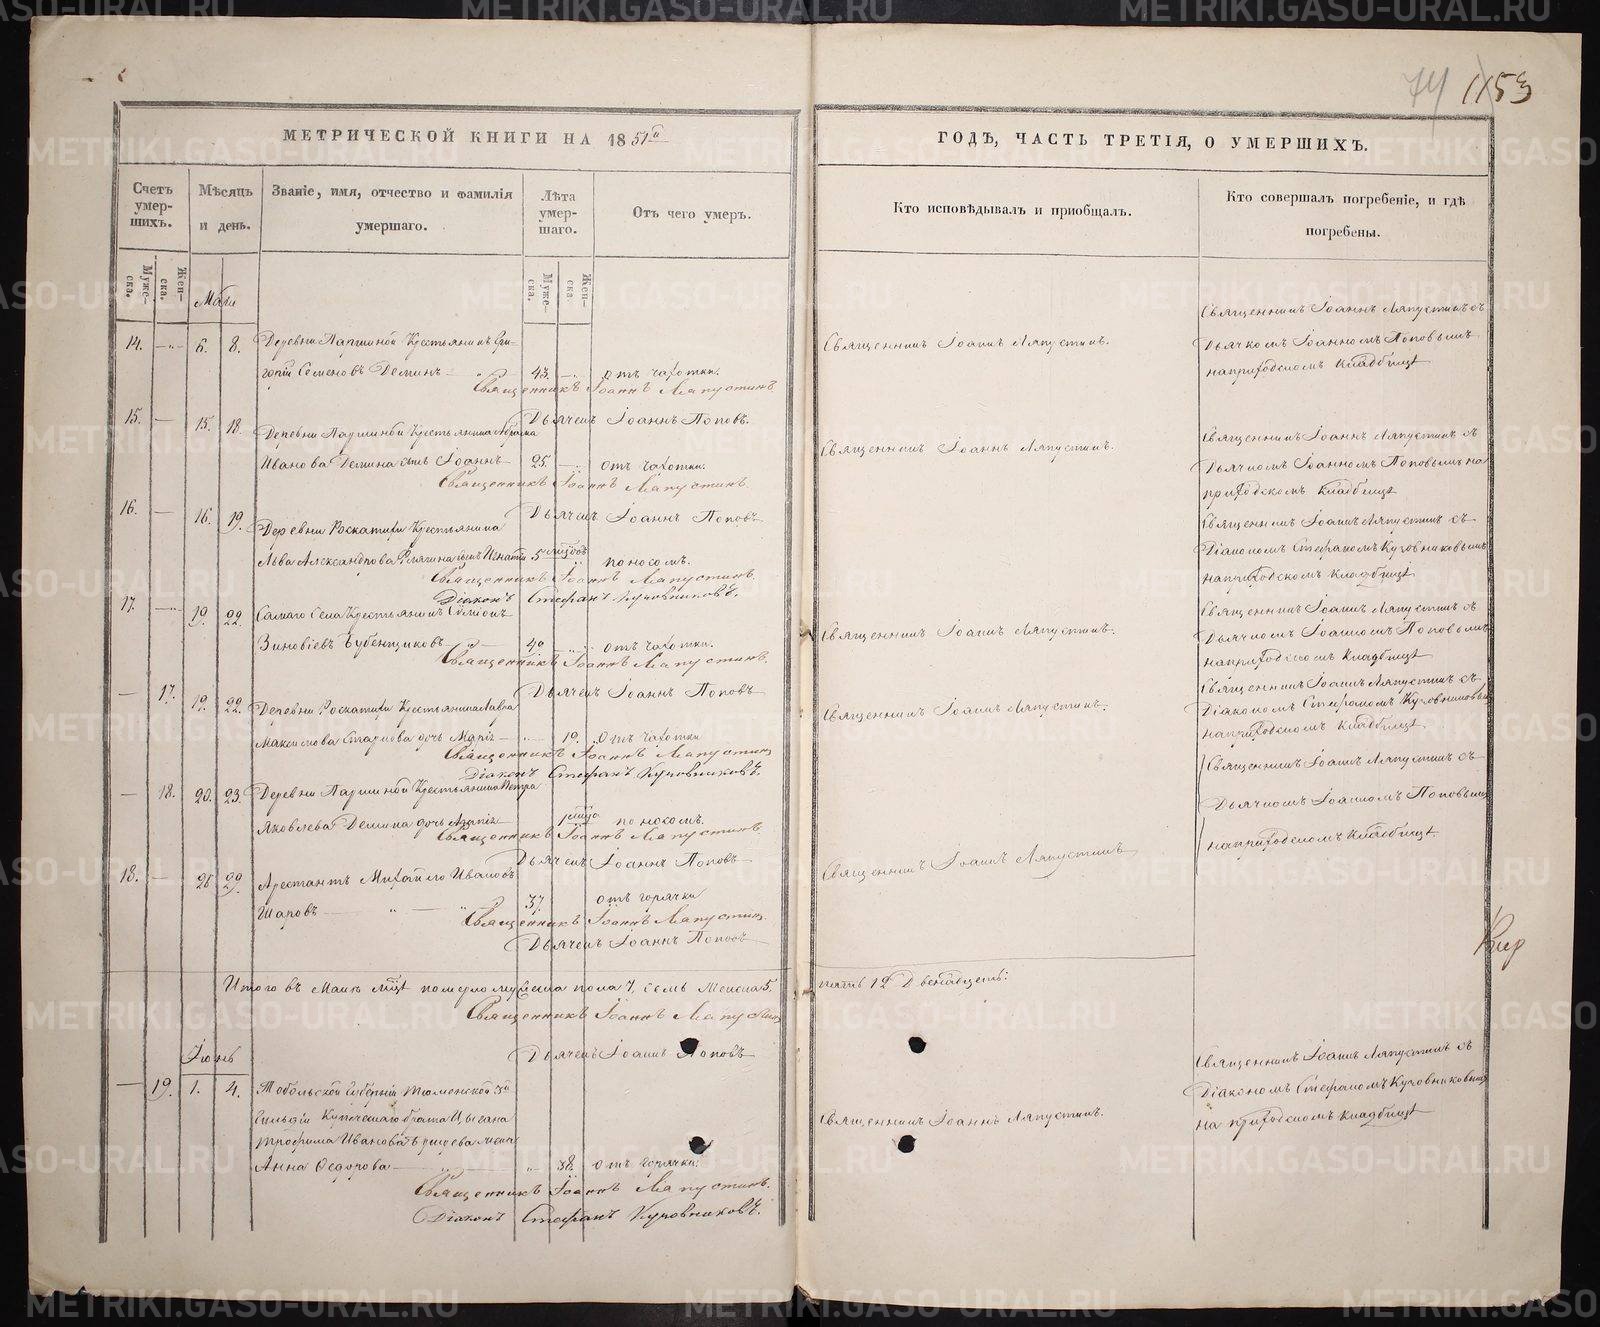 74 1153
МЕТРИЧЕСКОЙ КНИГИ НА 1851й
ГОДЪ, ЧАСТЬ ТРЕТІЯ, О УМЕРШИХЪ.
Счетъ умер-шихъ.
Мѣсяцъ и день.
Званіе, имя, отчество и фамилія умершаго.
Лѣта умер-шаго.
Отъ чего умеръ.
Кто исповѣдывалъ и пріобщалъ.
Кто совершалъ погребеніе, и гдѣ погребены.
Муже-ска. Жен-ска.
Муже-ска. Жен-ска.
Маія
14. 6. 8. Деревни Паршиной Крестьянинъ Гри-
горій Семеновъ Деминъ 43. отъ чахотки.
Священникъ Іоаннъ Ляпустинъ.
Дьячекъ Іоаннъ Поповъ.
Священникъ Іоаннъ Ляпустинъ.
Священникъ Іоаннъ Ляпустинъ съ
Дьячкомъ Іоанномъ Поповымъ
на приходскомъ кладбищѣ
15. 15. 18. Деревни Паршиной Крестьянина
Иванова Демина сынъ Іоаннъ 25. отъ чахотки.
Священникъ Іоаннъ Ляпустинъ.
Дьячекъ Іоаннъ Поповъ
Священникъ Іоаннъ Ляпустинъ.
Священникъ Іоаннъ Ляпустинъ съ
Дьячкомъ Іоанномъ Поповымъ на
приходскомъ кладбищѣ
16. 16. 19. Деревни Роскатихи Крестьянина
Льва Александрова сынъ Игнатій 5 мцовъ поносомъ.
Священникъ Іоаннъ Ляпустинъ.
Діаконъ Стефанъ Кузовниковъ.
Священникъ Іоаннъ Ляпустинъ съ
Діакономъ Стефаномъ Кузовниковымъ
на приходскомъ кладбищѣ
17. 19. 22. Самаго Села Крестьянинъ Симеонъ
Зиновіевъ Бубенщиковъ 40 отъ чахотки.
Священникъ Іоаннъ Ляпустинъ.
Дьячекъ Іоаннъ Поповъ
Священникъ Іоаннъ Ляпустинъ.
Священникъ Іоаннъ Ляпустинъ съ
Дьячкомъ Іоанномъ Поповымъ
на приходскомъ кладбищѣ
17. 19. 22. Деревни Роскатихи Крестьянина Саввы
Максимова дочь Марія 19. Отъ чахотки
Священникъ Іоаннъ Ляпустинъ
Діаконъ Стефанъ Кузовниковъ.
Священникъ Іоаннъ Ляпустинъ.
Священникъ Іоаннъ Ляпустинъ съ
Діакономъ Стефаномъ Кузовниковымъ
на приходскомъ кладбищѣ
18. 20. 23. Деревни Паршиной Крестьянина Петра
Яковлева Демина дочь Марія 1 мца поносомъ.
Священникъ Іоаннъ Ляпустинъ.
Дьячекъ Іоаннъ Поповъ
Священникъ Іоаннъ Ляпустинъ съ
Дьячкомъ Іоанномъ Поповымъ
на приходскомъ кладбищѣ
18. 26 29. Арестантъ Михайло Ивановъ
Шаровъ 37. отъ горячки
Священникъ Іоаннъ Ляпустинъ.
Дьячекъ Іоаннъ Поповъ
Священникъ Іоаннъ Ляпустинъ
Итого въ Маіѣ мцѣ померло мужеска пола 7, семь Женска 5,
пять 12 Двенадцеть:
Священникъ Іоаннъ Ляпустинъ
Дьячекъ Іоаннъ Поповъ
Іюнь
19. 1. 4. Тобольской Губерніи Тюменской 3й
Гильдіи Купеческаго брата
Трофима Иванова жена
Анна Федорова 38. отъ горячки.
Священникъ Іоаннъ Ляпустинъ.
Діаконъ Стефанъ Кузовниковъ.
Священникъ Іоаннъ Ляпустинъ.
Священникъ Іоаннъ Ляпустинъ съ
Діакономъ Стефаномъ Кузовниковымъ
на приходскомъ кладбищѣ
METRIKI.GASO-URAL.RU